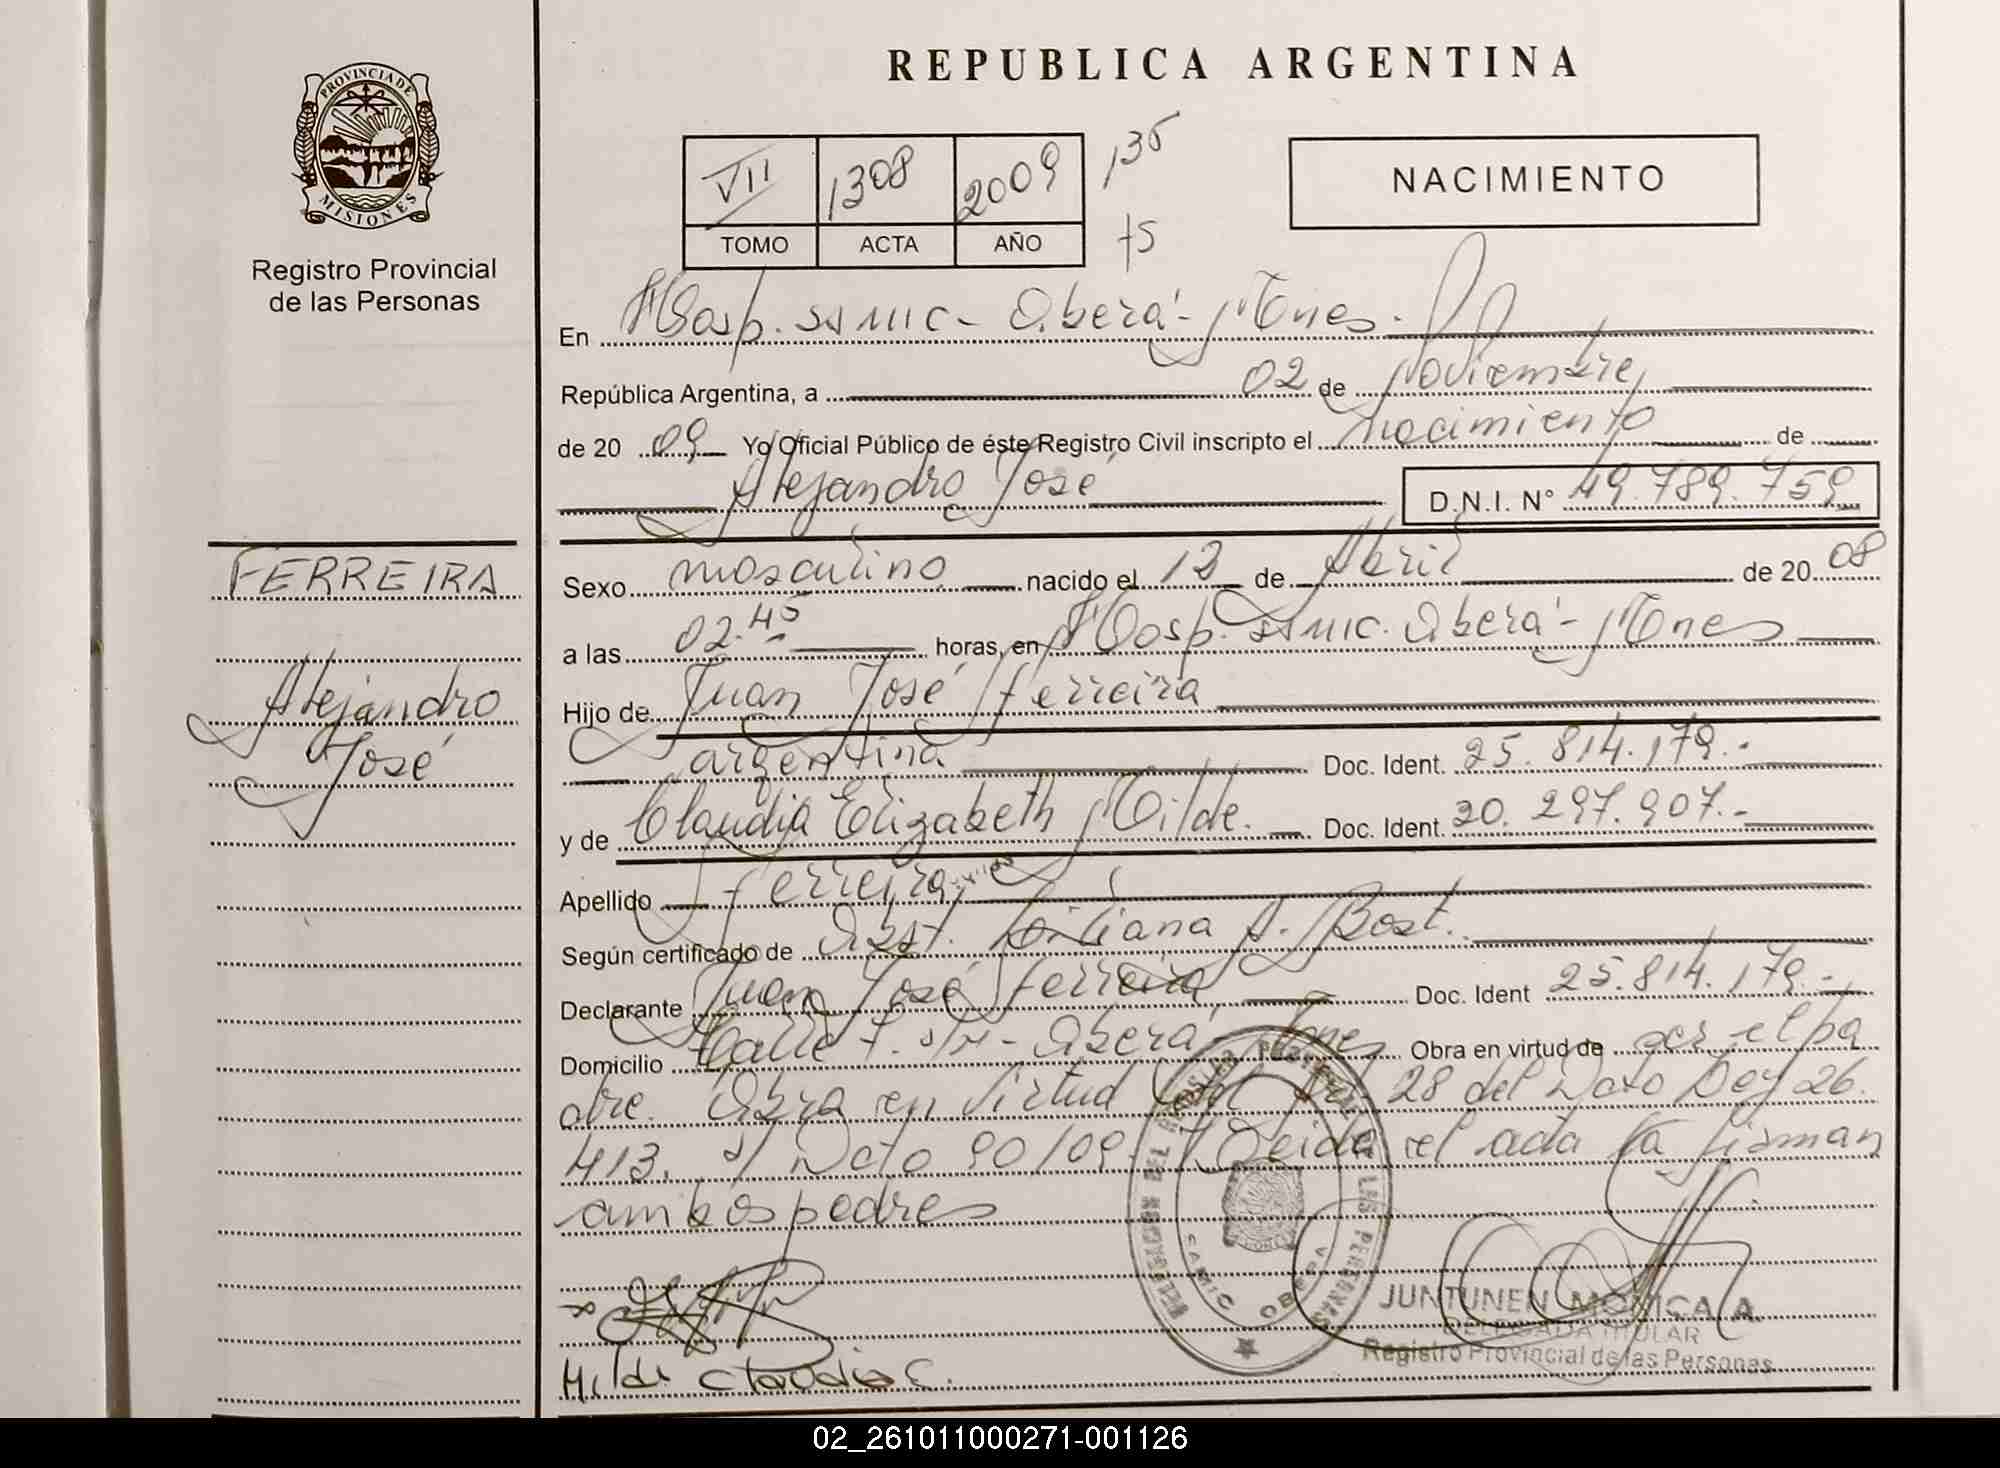 REPUBLICA ARGENTINA
PROVINCIA DE
MISIONES
Registro Provincial
de las Personas
VII 1308 2009 135
TOMO ACTA AÑO 75
NACIMIENTO
En Hosp. SAMIC - Oberá - Mnes.
República Argentina, a 02 de Noviembre
de 20 09 Yo Oficial Público de éste Registro Civil inscripto el nacimiento de
Alejandro José D.N.I. N° 49.789.759
FERREIRA
Alejandro
José
Sexo masculino nacido el 12 de Abril de 20 08
a las 02.45 horas, en Hosp. SAMIC. Oberá - Mnes
Hijo de Juan José Ferreira
argentina Doc. Ident. 25.814.179.-
y de Claudia Elizabeth Milde. Doc. Ident. 30.297.907.-
Apellido Ferreira
Según certificado de Obst. Liliana A. Bost.
Declarante Juan José Ferreira Doc. Ident 25.814.179.-
Domicilio Calle 7. s/n - Oberá, Mnes Obra en virtud de ser el pa
dre. Obra en virtud del Art 28 del Dcto Ley 26.
413. s/ Dcto 90/09. Leida el acta la firman
ambos padres
DELEGACION DEL REGISTRO PROVINCIAL DE LAS PERSONAS
SAMIC OBERA
JUNTUNEN MONICA A.
DELEGADA TITULAR
Registro Provincial de las Personas
Milde Claudia C.
02_261011000271-001126